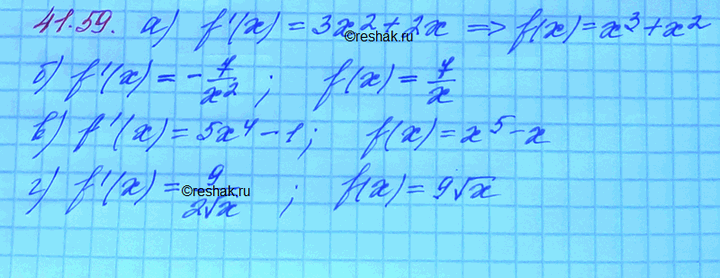 41.59. а) f'(x) = 3x2 + 2x => f(x) = x³ + x²
©reshak.ru
б) f'(x) = - 7/x² ; f(x) = 7/x
в) f'(x) = 5x⁴ - 1 ; f(x) = x⁵ - x
г) f'(x) = 9/2√x ; f(x) = 9√x
©reshak.ru